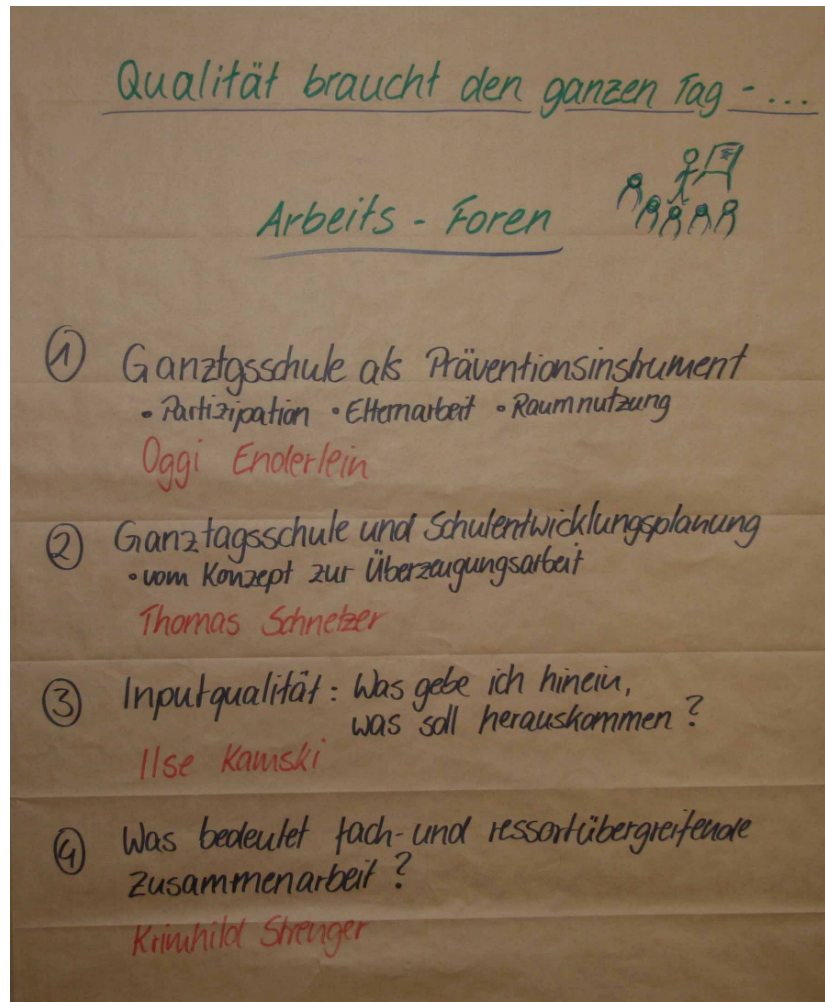 Qualität braucht den ganzen Tag - ...
Arbeits - Foren
1 Ganztgsschule als Präventionsinstrument
• Partizipation • Elternarbeit • Raumnutzung
Oggi Enderlein
2 Ganztagsschule und Schulentwicklungsplanung
• vom Konzept zur Überzeugungsarbeit
Thomas Schnetzer
3 Inputqualität: Was gebe ich hinein,
was soll herauskommen?
Ilse Kamski
4 Was bedeutet fach- und ressortübergreifende
Zusammenarbeit?
Krimhild Strenger